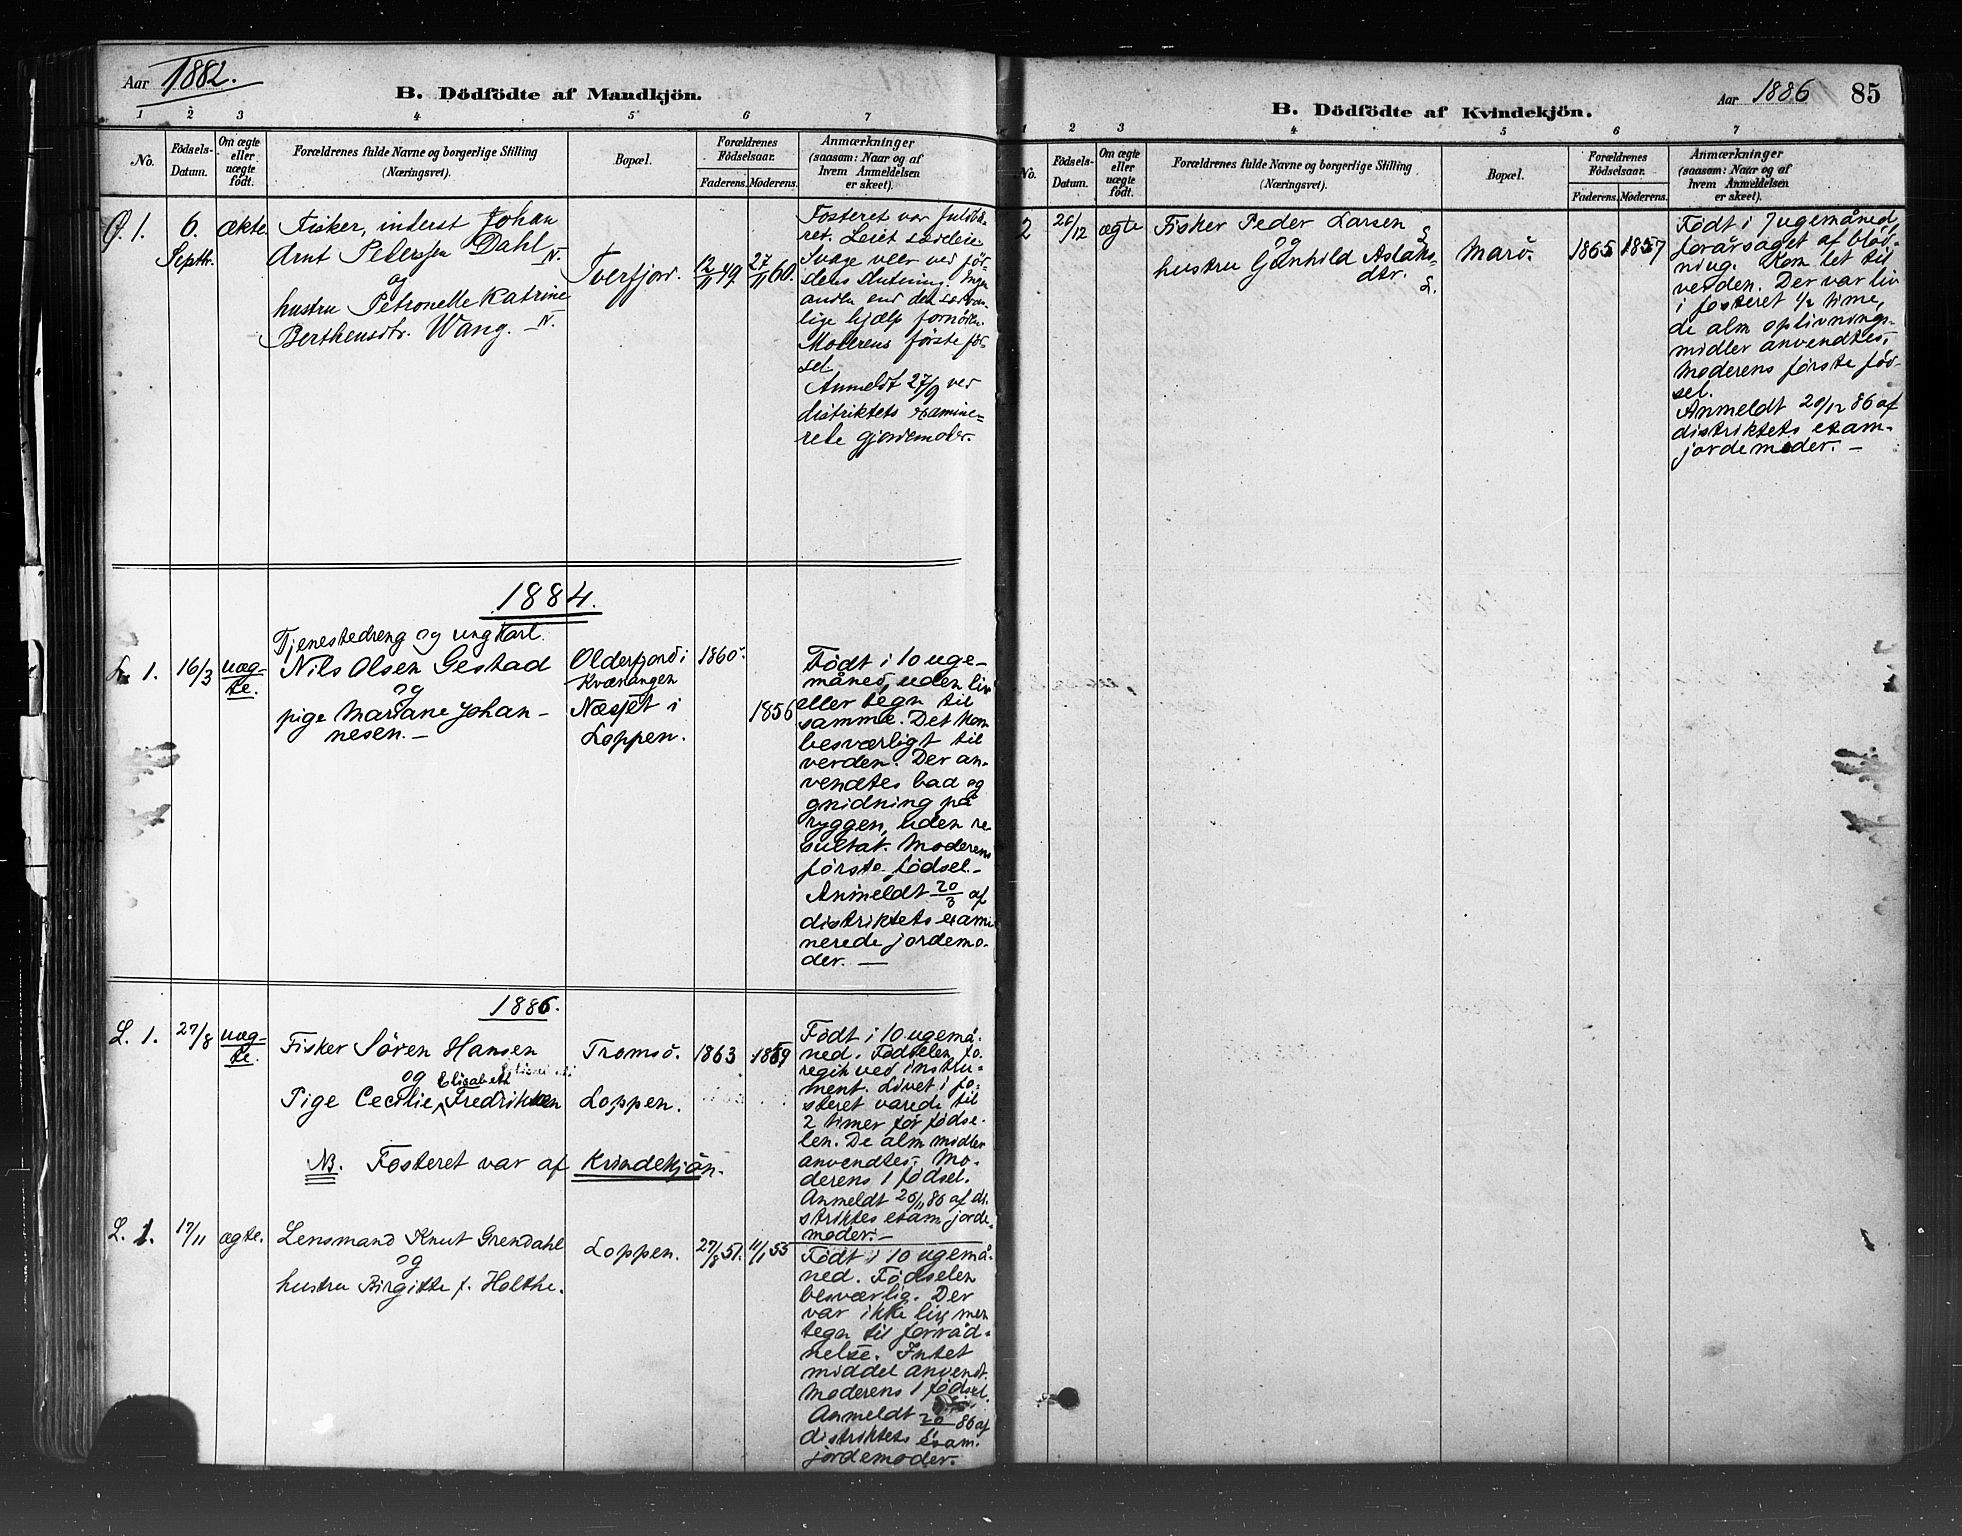 Aar 1882.
B. Dödfödte af Mandkjön.
1 2 3 4 5 6 7
No.
Födsels-
Datum.
Om ægte
eller
uægte
födt.
Forældrenes fulde Navne og borgerlige Stilling
(Næringsvei).
Bopæl.
Forældrenes
Födselsaar.
Faderens. Moderens.
Anmærkninger
(saasom: Naar og af
hvem Anmeldelsen
er skeet).
1.
6.
Septbr.
ækte
Fisker, inderst Johan
Arnt Peterssen Dahl N.
og
hustru Petronelle Katrine
Berthensdtr. Wang. - N.
Tverfjor.
12/11 49.
27/11 60.
Fosteret var fuldbå-
ret. Leiet særdeles
Svage veer ved fös-
lens slutning. Ingen
anden end det sædvan-
lige hjælp fornöden.
Moderens förste föd-
sel.
Anmeldt 27/9 ved
distriktets examine-
rete gjordemoder.
1884.
1.
16/3
uæg-
te.
Tjenestedreng og ungkarl.
Nils Olsen Gestad
og
pige Mariane Johan-
nesen. -
Olderfjord i
Kvænangen
Næsset i
Loppen.
1860.
1856
Födt i 10 uge-
måned, uden liv
eller tegn til
samme. Det kom
besværligt til
verden. Der an-
vendtes bad og
gnidning på
ryggen, uden re-
sultat. Moderens
förste födsel.-
Anmeldt 20/3 af
distriktets exami
nerede jordemo-
der. -
1886.
L. 1.
27/8
uæg-
te.
Fisker Sören Hansen
og Elisabeth
Pige Cecilie Fredriksen
Tromsö.
Loppen.
1863
1859
Födt i 10 ugemå-
ned. Födselen fo-
regik ved instru-
ment. Livet i fo-
steret varede til
2 timer för födse-
len. De alm midler
anvendtes, Mo-
derens 1 födsel.
Anmeldt 20/11 86 af di-
striktes exam jorde-
moder.-
NB. Fosteret var af Kvindekjön.
L. 1.
17/11
ægte.
Lensmand Knut Grendahl
og
hustru Birgitte f. Holthe.
Loppen.
27/8 51.
11/1 55
Födt i 10 ugemå-
ned. Födselen
besværlig. Der
var ikke liv men
tegn til forråd-
nelse. Intet
middel anvendt.
Moderens 1 födsel.
Anmeldt 20/11 86 af
distriktets exam.
jordemoder.
Aar 1886 85
B. Dödfödte af Kvindekjön.
1 2 3 4 5 6 7
No.
Födsels-
Datum.
Om ægte
eller
uægte
födt.
Forældrenes fulde Navne og borgerlige Stilling
(Næringsvei).
Bopæl.
Forældrenes
Födselsaar.
Faderens. Moderens.
Anmærkninger
(saasom: Naar og af
hvem Anmeldelsen
er skeet).
2
ægte
Fisker Peder Larsen
og
hustru Gunhild Aslaks-
dtr.
Marö.
1865
1857
Födt i 7 ugemåned,
forårsaget af blöd-
ning. Kom let til
verden. Der var liv
i fosteret 1/2 time,
de alm oplivnings-
midler anvendtes,
Moderens förste föd-
sel.
Anmeldt 20/12 86 af
distriktets exam-
jordemoder. -